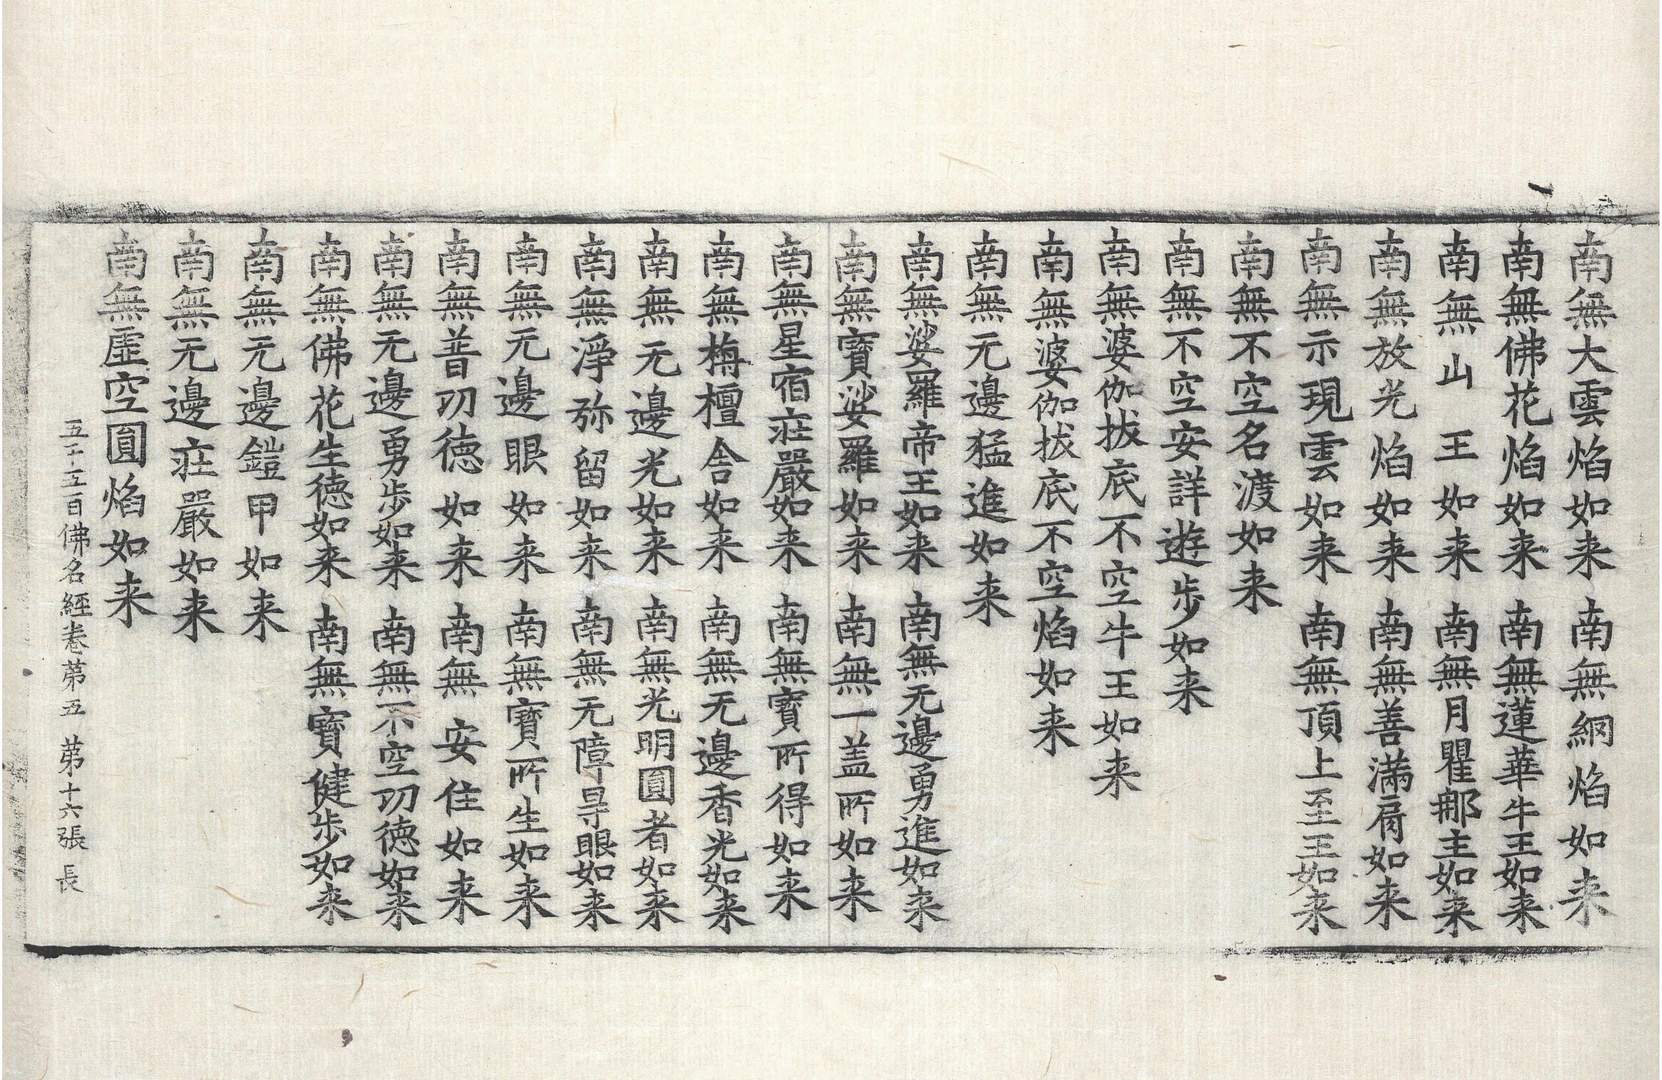 南無大雲焰如来 南無網焰如来
南無佛花焰如来 南無蓮華牛王如来
南無山王如来 南無月瞿郍主如来
南無放光焰如来 南無善滿肩如来
南無示現雲如来 南無頂上至王如来
南無不空名渡如来
南無不空安詳遊步如来
南無婆伽拔底不空牛王如来
南無婆伽拔底不空焰如来
南無无邊猛進如来
南無娑羅帝王如来 南無无邊勇進如来
南無寶娑羅如来 南無一盖所如来
南無星宿庄嚴如来 南無寶所得如来
南無栴檀舍如来 南無无邊香光如来
南無无邊光如来 南無光明圓者如来
南無淨弥留如来 南無无障㝵眼如来
南無无邊眼如来 南無寶所生如来
南無普㓛德如来 南無安住如来
南無无邊勇步如来 南無不空㓛德如来
南無佛花生德如来 南無寶健步如来
南無无邊鎧甲如来
南無无邊庄嚴如来
南無虛空圓焰如来
五千五百佛名經卷第五 第十六張 長